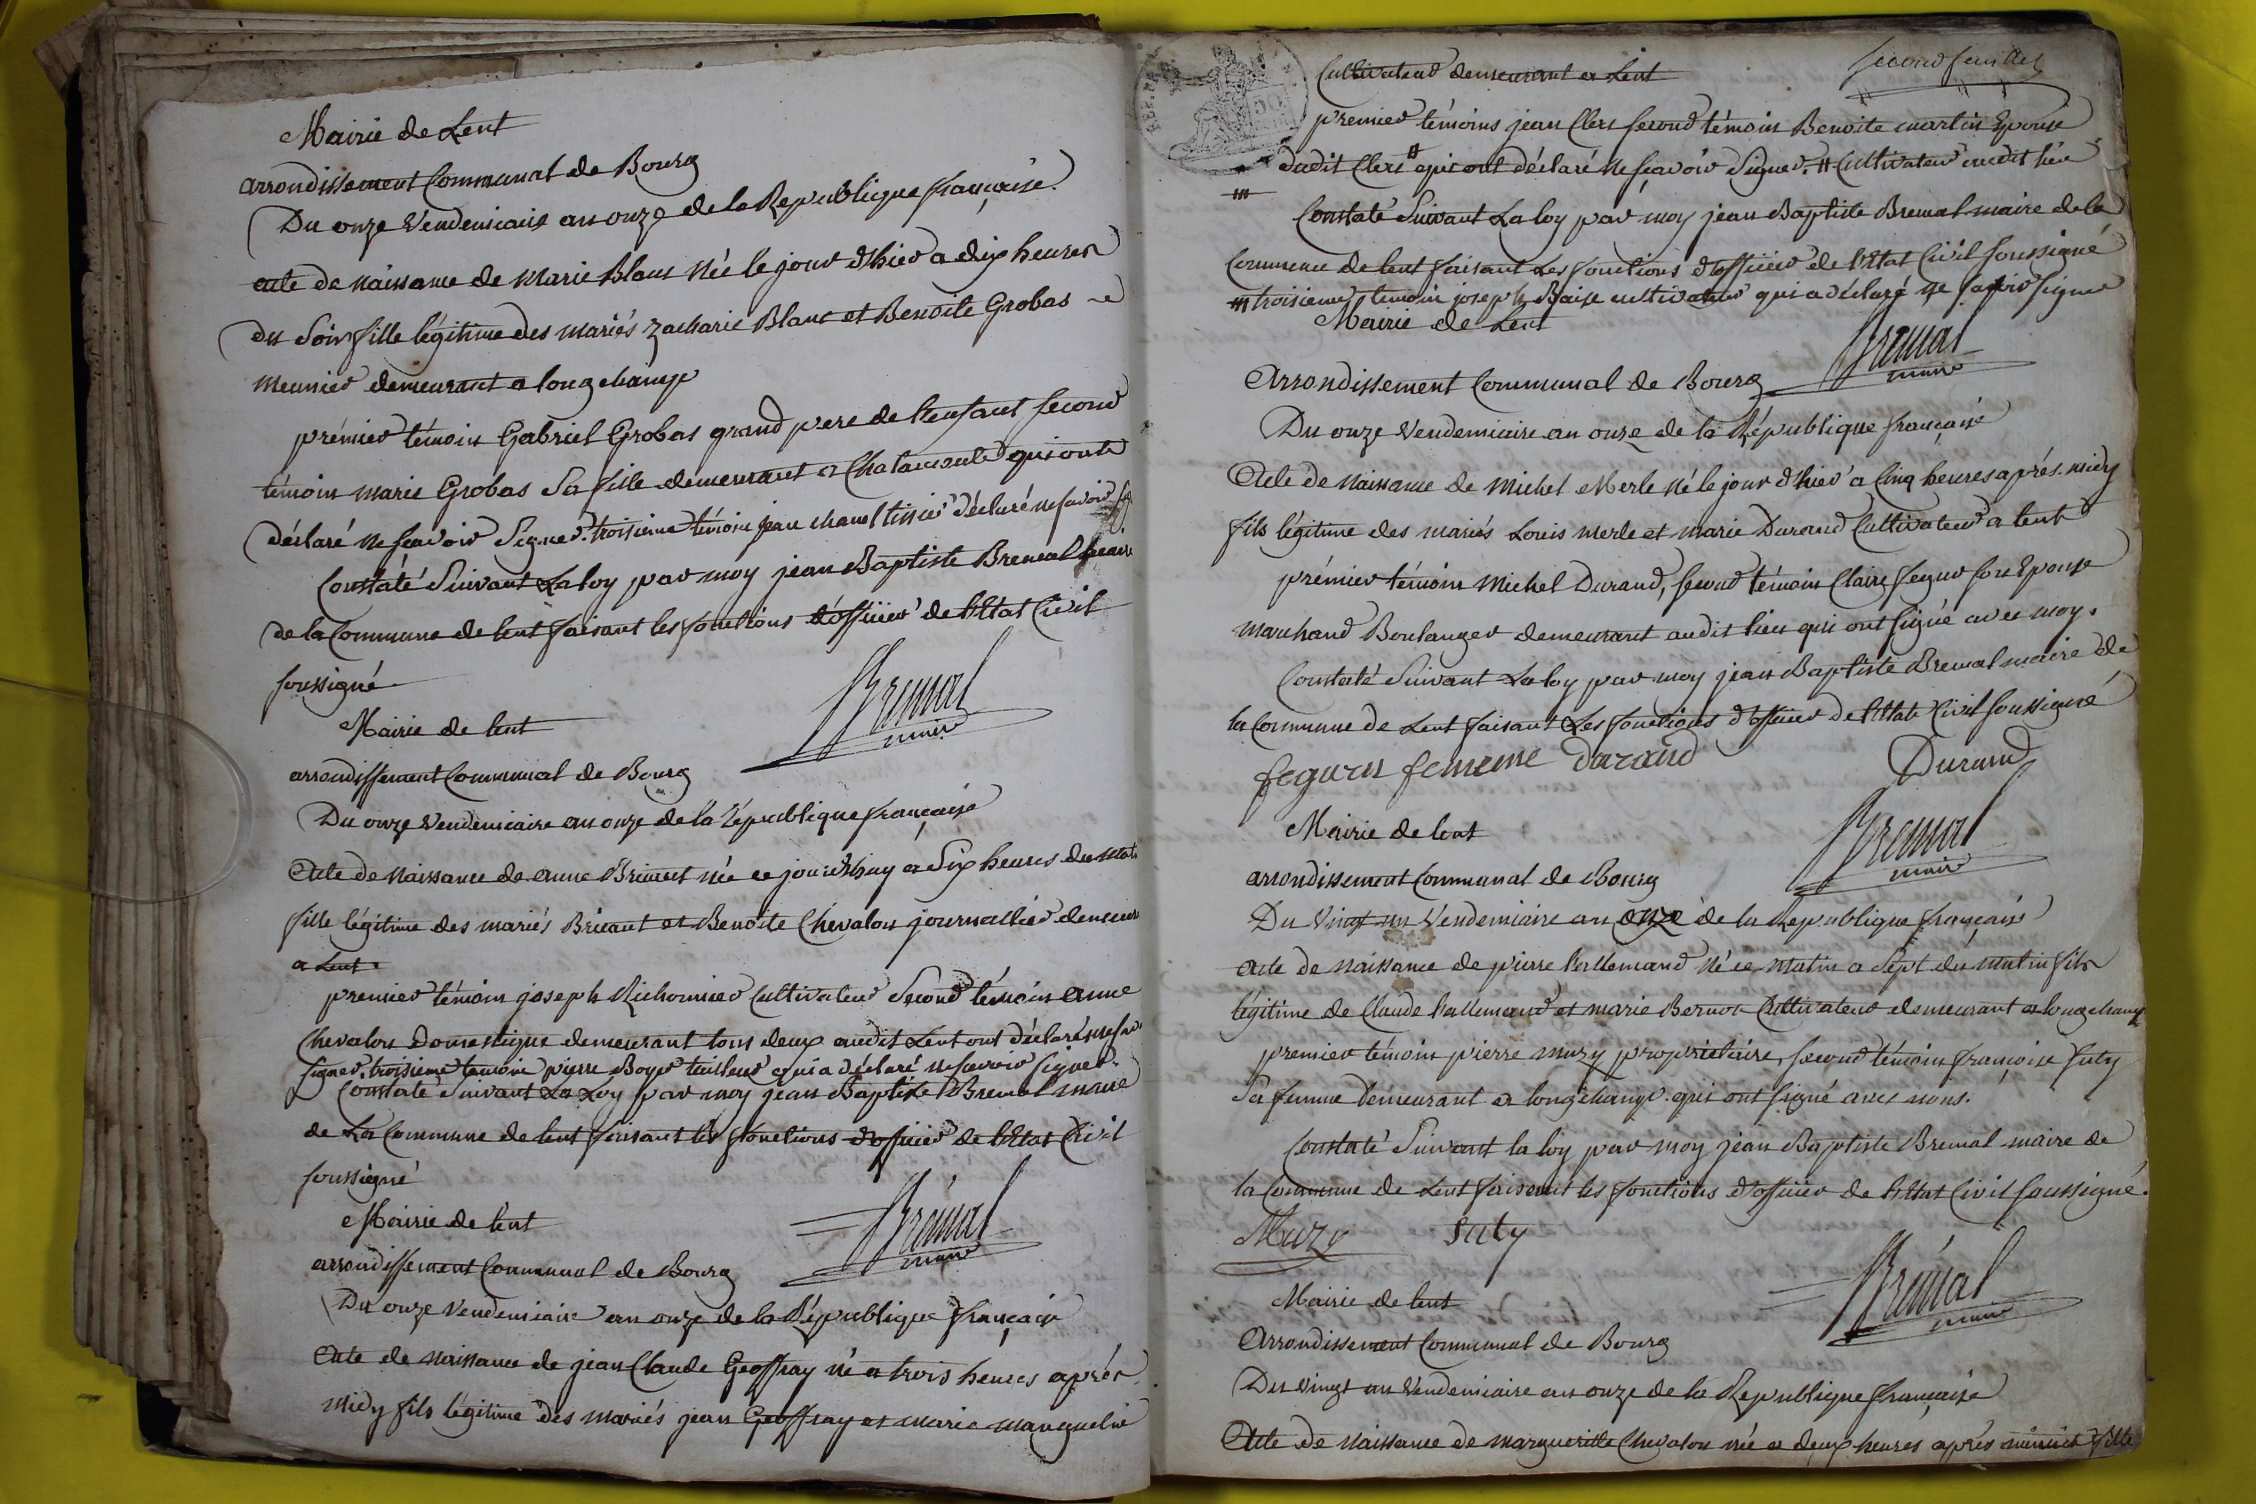 Mairie de Lent
arrondissement Communal de Bourg
Du onze Vendemiaire an onze de la Republique française.
acte de naissance de Marie Blanc Née le jour d'hier a dix heures
du Soir fille légitime des mariés Zacharie Blanc et Benoite Grobas
meunier demeurant a longchamp
prémier témoin Gabriel Grobas grand pere de l'enfant second
témoin marie Grobas Sa fille demeurant a Chalamont qui ont
déclaré ne sçavoir Signer. troisieme témoin jean chanel tissier déclaré ne savoir
Constaté Suivant La loy par moy jean Baptiste Bremal maire
de la Commune de lent faisant les fonctions d'officier de l'Etat Civil
soussigné
Bremal
maire
Mairie de lent
arrondissement Communal de Bourg
Du onze Vendemiaire an onze de la république française
Acte de Naissance de anne Bricant née ce jourd'huy a Six heures du mat
fille légitime des mariés Bricant et Benoite Chevalon journallier demeur
a Lent.
premier témoin joseph Richonnier Cultivateur Second témoin anne
Chevalon domestique demeurant tous deux audit Lent ont déclaré ne sav
signer. troisieme temoin pierre Boyer tailleur qui a déclaré ne savoir signer.
Constaté Suivant La Loy par moy jean Baptiste Bremal maire
de La Commune de lent faisant les fonctions d'officier de l'Etat Civil
soussigné
Bremal
maire
Mairie de lent
arrondissement Communal de Bourg
Du onze Vendemiaire an onze de la République française
Acte de naissance de jean Claude Geoffray né a trois heures aprés
Midy fils légitime des mariés jean Geoffray et marie manguelin
second feuillet
Cultivateur demeurant a Lent
premier témoins jean Clerc second témoin Benoite martin Epouse
dudit Clerc # qui ont déclaré ne sçavoir Signer. # Cultivateur audit lieu
Constaté Suivant La loy par moy jean Baptiste Bremal maire de la
Commune de lent faisant Les fonctions d'officier de l'Etat Civil soussigné
troisieme temoin joseph Baise cultivateur qui a déclaré ne savoir signer
Mairie de Lent
Bremal
maire
Arrondissement Communal de Bourg
Du onze Vendemiaire an onze de la République française
Acte de naissance de Michel Merle Né le jour d'hier a Cinq heures aprés. midy
fils légitime des mariés Louis Merle et marie Durand Cultivateur a lent
prémier témoin Michel Durand, second témoin Claire Segur son Epouse
marchand Boulanger demeurant audit lieu qui ont signé avec moy.
Constaté Suivant La loy par moy jean Baptiste Bremal maire de
la Commune de Lent faisant Les fonctions d'officier de l'Etat Civil soussigné
seguin femme durand Durand
Bremal
maire
Mairie de lent
arrondissement Communal de Bourg
Du Vingt un Vendemiaire an onze de la Republique française
acte de naissance de pierre Lallemand né ce matin a Sept du matin fils
légitime de Claude Lallemand et marie Bernon Cultivateur demeurant a longchamp
premier témoin pierre muzy proprietaire, second témoin françoise Suty
Sa femme demeurant a longchamp. qui ont signé avec nous.
Constaté Suivant la loy par moy jean Baptiste Bremal maire de
la Commune de Lent faisant les fonctions d'officier de l'Etat Civil soussigné.
Muzy Suty
Bremal
maire
Mairie de lent
Arrondissement Communal de Bourg
Du Vingt un Vendemiaire an onze de la Republique française
Acte de Naissance de marguerite Chevalon née a deux heures aprés minuit fille